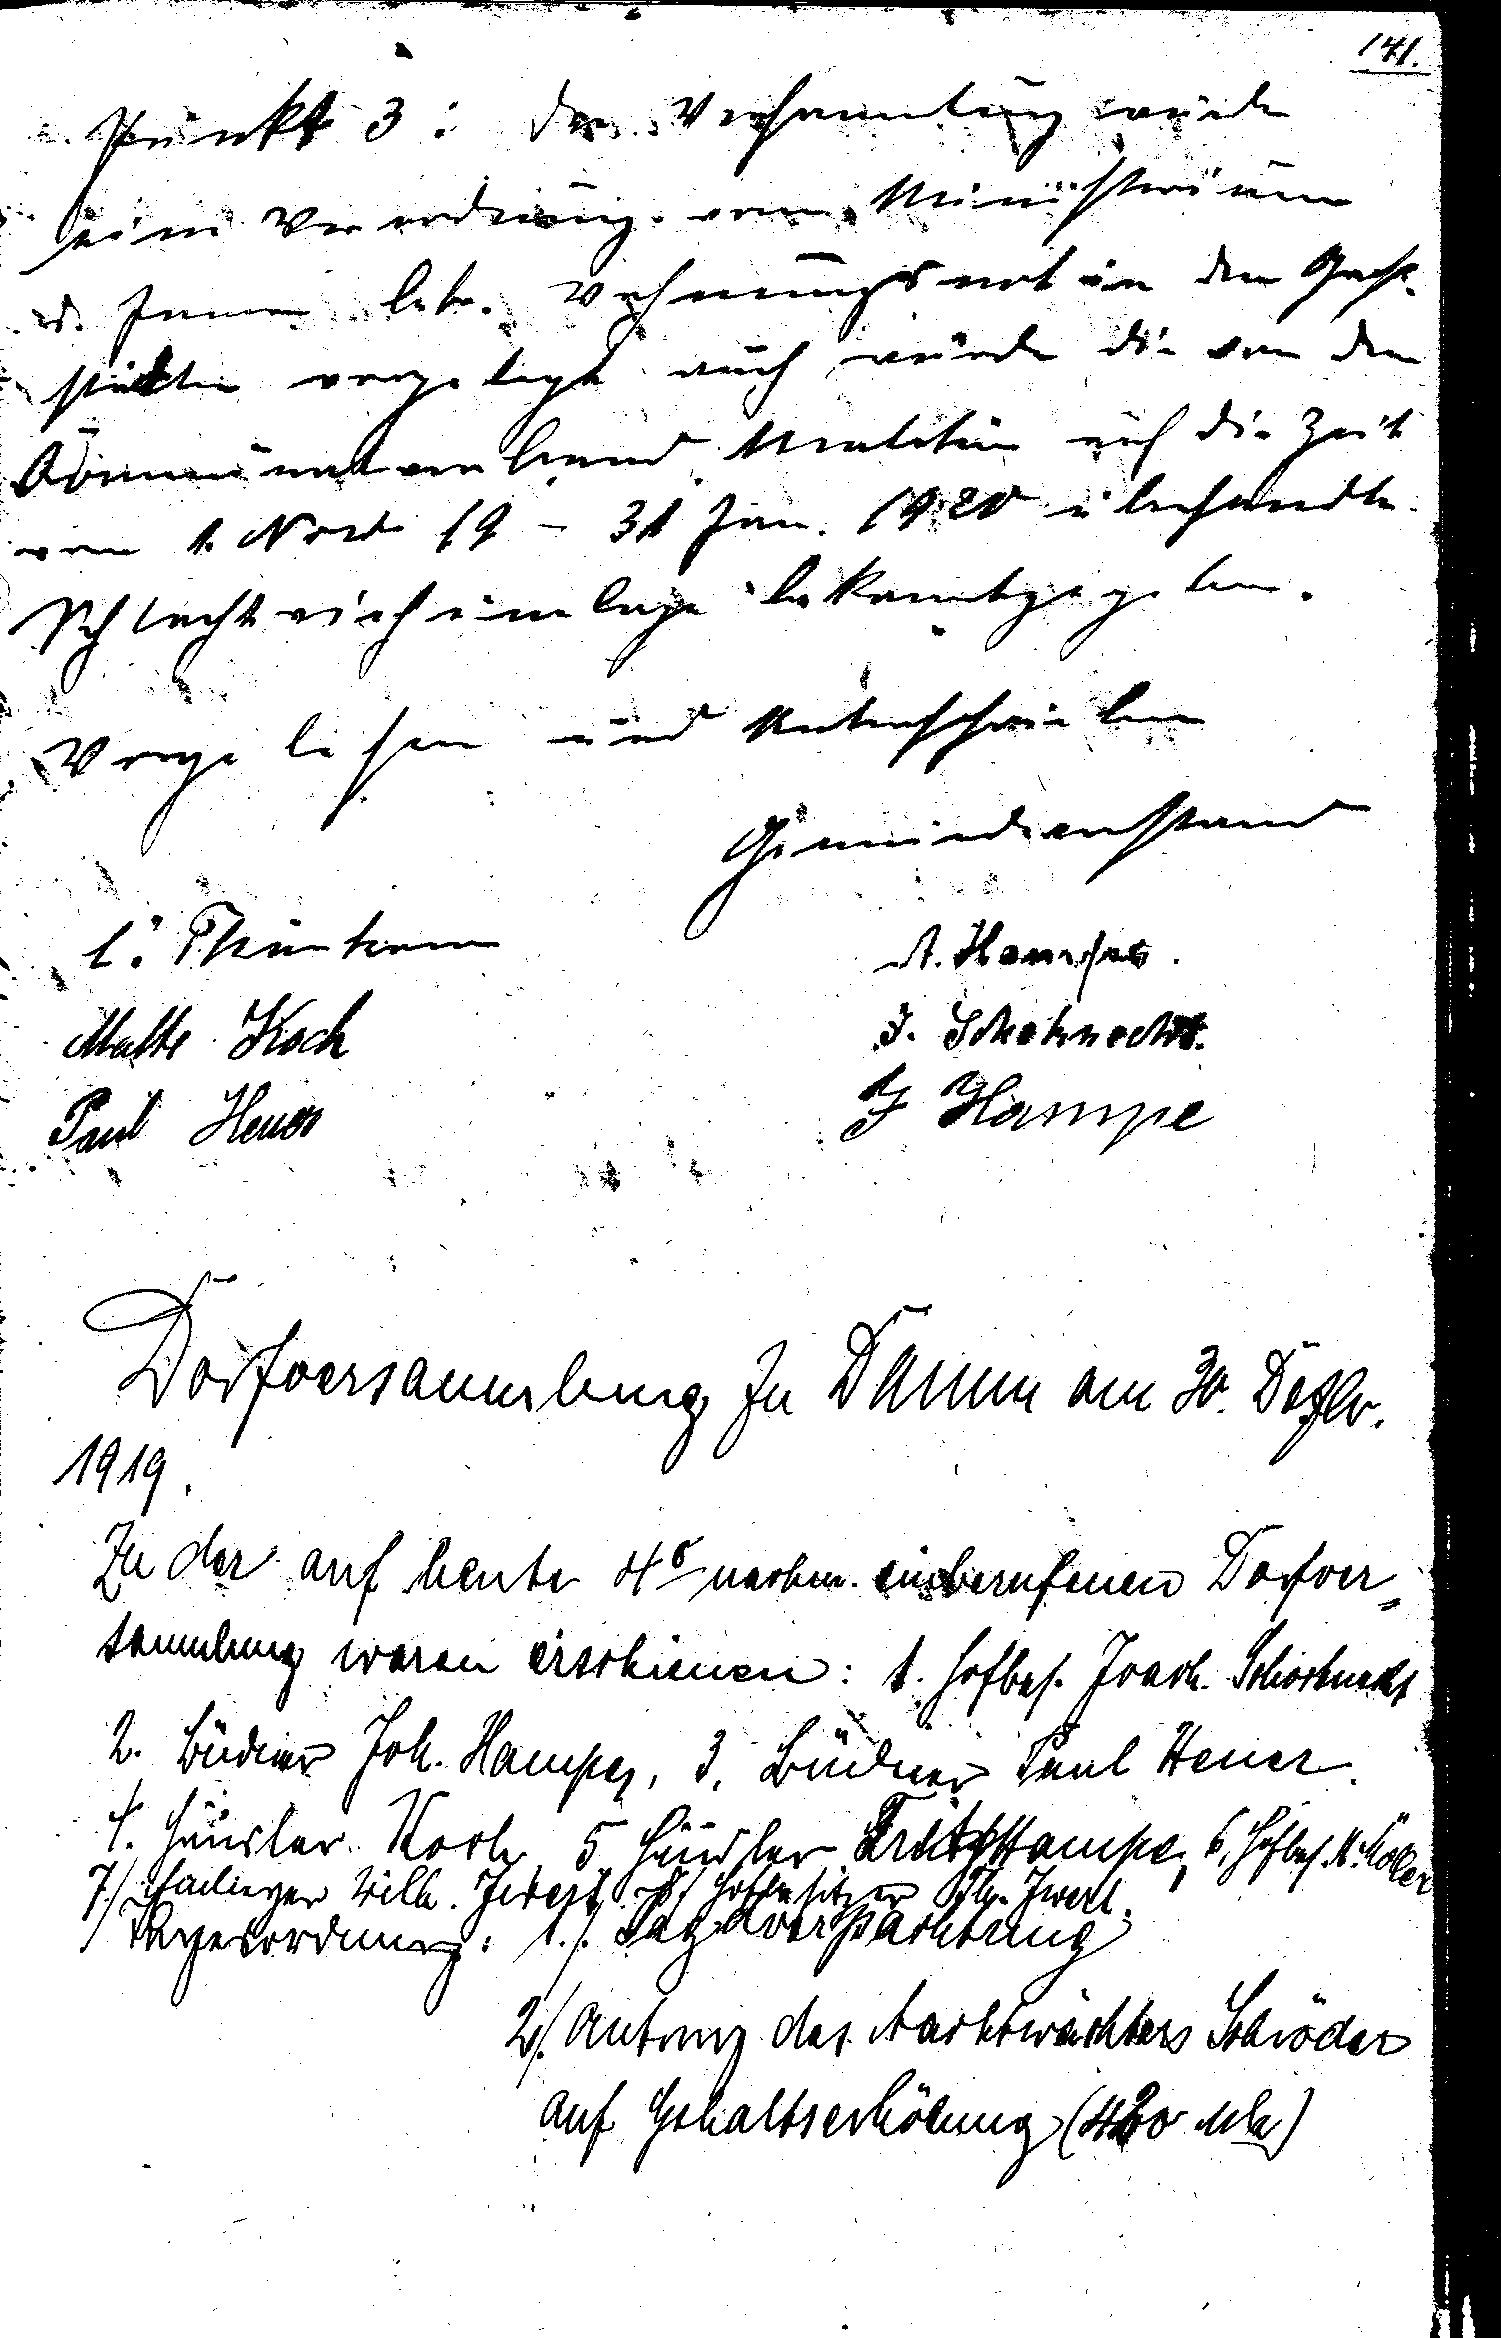 141.
Punkt 3: Der Versammlung wurde
eine Verordnung vom Ministerium
d. Innern betr. Wohnungsnot in den
städten vorgelegt auch wurde die von dem
Kommunalverband Malchin auf die Zeit
vom 1. Novb 19 – 31 Jan. 1920 übersandte
Schlachtviehumlage bekanntgegeben.
Vorgelesen und Unterschrieben
Gemeindevorstand
Malte Koch
J. Schoknecht.
Paul Heuer
J Hampe
Dorfversammlung zu Damm am 30. Dezbr.
1919.
Zu der auf heute 4 nachm. einberufenen Dorfver-
sammlung waren erschienen: 1. Hofbes. Joach. Schoknecht
2. Büdner Joh. Hampe, 3. Büdner Paul Heuer.
4. Häusler Koch 5 Häusler Fritz Hampe, 6. Hofbes. M. Möller
7./ Wilh. Hofbesitzer
Tagesordnung: 1./. Jagdverpachtung
2./. Antrag des Nachtwächters Schröder
auf Gehaltserhöhung (420 Mk)